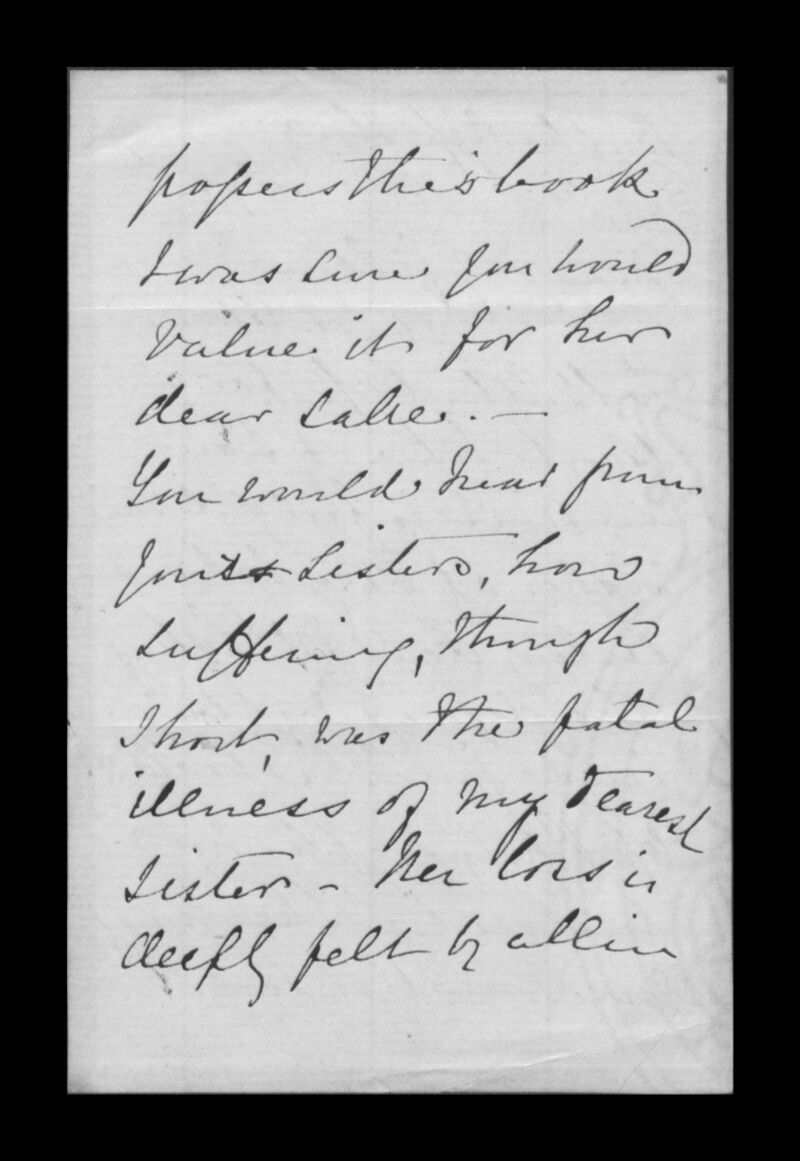 possess this book
I was sure you would
value it for her
dear sake. —
You would hear from
your sisters, how
suffering, though
short, was the fatal
illness of my dearest
sister - Her loss is
deeply felt by all in